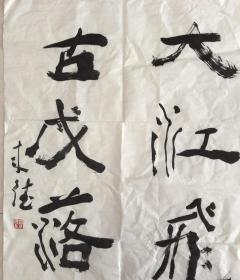 大江飛
古戍落